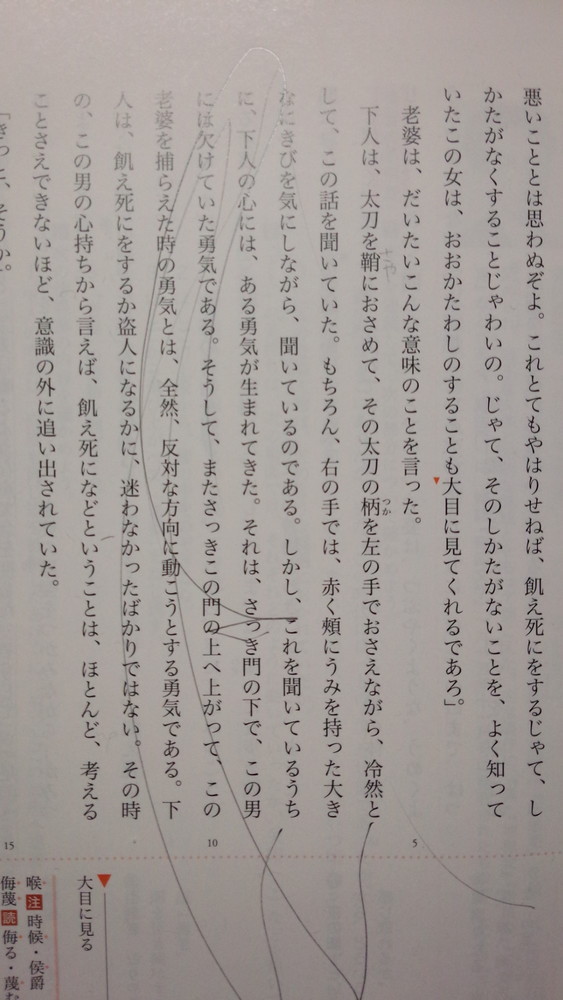 悪いこととは思わぬぞよ。これとてもやはりせねば、飢え死にをするじゃて、し
かたがなくすることじゃわいの。じゃて、そのしかたがないことを、よく知って
いたこの女は、おおかたわしのすることも大目に見てくれるであろ」。
老婆は、だいたいこんな意味のことを言った。
下人は、太刀を鞘におさめて、その太刀の柄を左の手でおさえながら、冷然と
つか
さや
5
して、この話を聞いていた。もちろん、右の手では、赤く頰にうみを持った大き
なにきびを気にしながら、聞いているのである。しかし、これを聞いているうち
に、下人の心には、ある勇気が生まれてきた。それは、さっき門の下で、この男
には欠けていた勇気である。そうして、またさっきこの門の上へ上がって、この
10
老婆を捕らえた時の勇気とは、全然、反対な方向に動こうとする勇気である。下
人は、飢え死にをするか盗人になるかに、迷わなかったばかりではない。その時
の、この男の心持ちから言えば、飢え死になどということは、ほとんど、考える
ことさえできないほど、意識の外に追い出されていた。
「きっと、そうか。
15
▼大目に見る
喉 注 時候・侯爵
侮蔑 読 侮る・蔑む